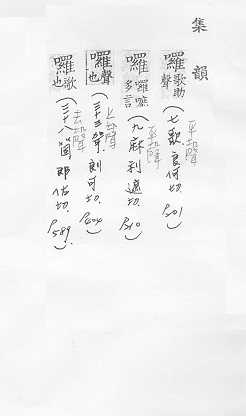 集韻
囉歌助聲（七歌良何切。P.201）平聲
囉囉嘛多言（九麻利遮切。P.210）平聲
囉聲也（三十三哿。朗可切。P.404）上聲
囉歌也（三十八箇郎佐切。P.589）去聲